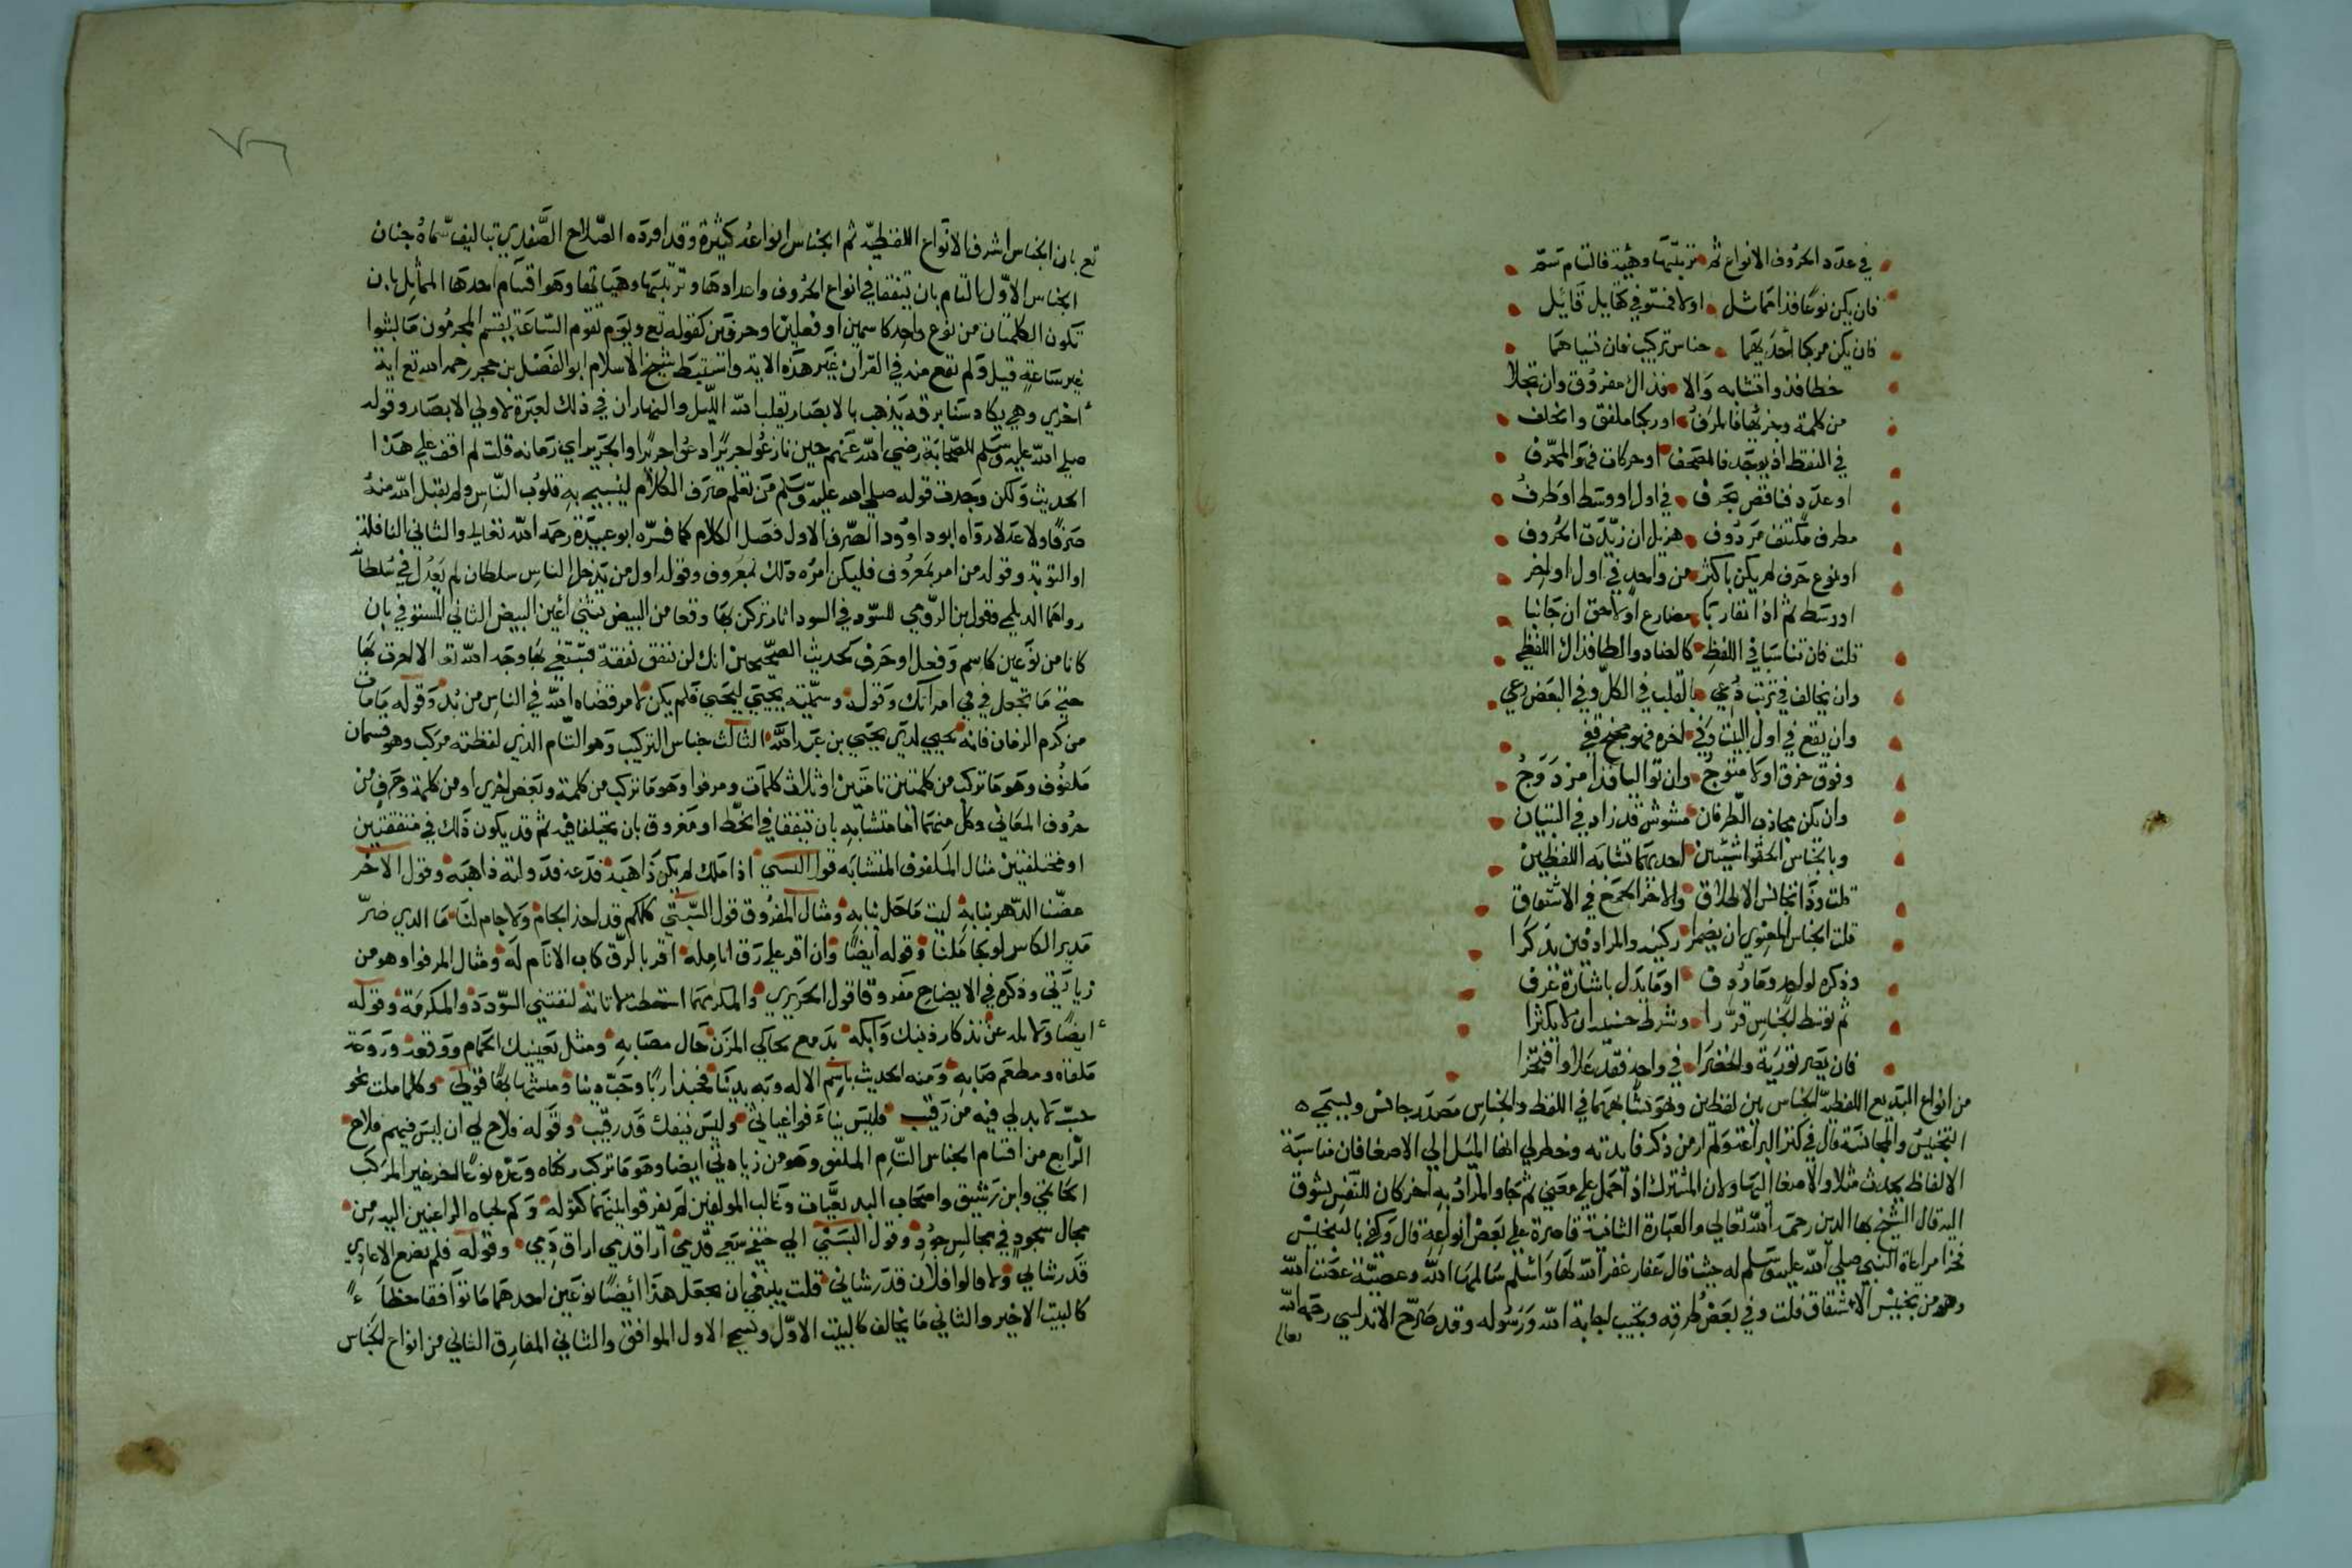 في عدد الحروف الانواع ثم ترتيبها وهيئة فالتام تسم
فان يكن نوعا فذا مماثل اولا فمستوفي كقايل قايل
فان يكن مركبا احديهما جناس تركيب فان تنياهما
خطا فذو اتشابه والا فذاك مفروق وان تجلا
من كلمة وجزئها فالمرفو او ركبا ملفق وان خلف
في النقط اذ يوجد فالمصحف او حركات فهو المحرف
او عدد فناقص بحرف في اول او وسط او طرف
مطرف مكتنف مردوف مذيل ان زيدت الحروف
او نوع حرف لم يكن باكثر من واحد في اول او اخر
او وسط ثم اذا تقاربا مضارع او لاحق ان جانبا
قلت فان تناسبا في اللفظ كالضاد والظا فذاك اللفظي
وان تخالف في ترتيب دعي بالقلب في الكل وفي البعض رعي
وان يقع في اول البيت وفي اخره فهو مجنح قفي
وفوق حرف اولا متوج وان تواليا فذا مزدوج
وان يكن تجاذب الطرفان مشوش قد زاد في التبيان
وبالجناس الحقوا شيئين احديهما تشابه اللفظين
قلت وذا تجانس الاطلاق والاخر الجمع في الاشتقاق
قلت الجناس المعنوي ان يضمرا ركنيه والمرادفين يذكرا
وذكره لواحد ومارودف او ما يدل باشارة عرف
ثم توسط الجناس قررا وشرط حسنه ان لا يكثرا
فان يصر تورية وانحصرا في واحد فقد علا وافتخرا
من انواع البديع اللفظية الجناس بين لفظين وهو تشابههما في اللفظ والجناس مصدر جانس ويسمى
التجنيس والمجانسة قال في كنز البراعة ولم ار من ذكر فايدته وخطر لي انها الميل الي الاصغا فان مناسبة
الالفاظ يحدث مثلا والاصغا اليها ولان المشترك اذا حمل علي معني ثم جا والمراد به اخر كان للنفس تشوق
اليه قال الشيخ بها الدين رحمه الله تعالي والعبارة الثانية قاصرة علي بعض انواعه قال وكفي بالتجنيس
فخرا مراعاة النبي صلي الله عليه وسلم له حيث قال غفار غفر الله لها واسلم سالمها الله وعصية عصت الله
وهو من تجنيس الاشتقاق قلت وفي بعض طرقه وتجيب اجابة الله ورسوله وقد صرح الاندلسي رحمه الله
تعالي
تع بان الجناس اشرف الانواع اللفظية ثم الجناس انواعه كثيرة وقد افرده الصلاح الصفدي بتاليف سماه جنان
الجناس الاول التام بان يتفقا في انواع الحروف واعدادها وترتيبها وهياتها وهو اقسام احدها المماثل بان
تكون الكلمتان من نوع واحد كاسمين او فعلين او حرفين كقوله تع ويوم تقوم الساعة يقسم المجرمون ما لبثوا
غير ساعة قيل ولم تقع منه في القران غير هذه الاية واستنبط شيخ الاسلام ابو الفضل بن حجر رحمه الله تع اية
اخري وهي يكاد سنا برقه يذهب بالابصار يقلب الله الليل والنهار ان في ذلك لعبرة لاولي الابصار وقوله
صلي الله عليه وسلم للصحابة رضي الله عنهم حين نازعوا جريرا دعوا جريرا والجرير اي زمامه قلت لم اقف علي هذا
الحديث ولكن وجدت قوله صلي الله عليه وسلم من تعلم صرف الكلام ليسبي به قلوب الناس لم يقبل الله منه
صرفا ولا عدلا رواه ابو داوود الصرف الاول فضل الكلام كما فسره ابو عبيدة رحمه الله تعالي والثاني النافلة
او التوبة وقوله من امر بمعروف فليكن امره ذلك بمعروف وقوله اول من يدخل الناس سلطان لم يعدل في سلطا
رواهما الديلمي وقول ابن الرومي للسود في السود اثار تركن بها وقعا من البيض تثني اعين البيض الثاني المستوفي بان
كانا من نوعين كاسم وفعل او حرف كحديث الصحيحين انك لن تنفق نفقة تبتغي بها وجه الله تع الا اجرت بها
حتي ما تجعل في في امراتك وقوله وسميته يحيي ليحيي فلم يكن لامر قضاه الله في الناس من بد وقوله ما مات
من كرم الزمان فانه يحيي لدي يحيي بن عبد الله الثالث جناس التركيب وهو التام الذي لفظته مركب وهو قسمان
ملفوف وهو ما تركب من كلمتين تامتين او ثلاث كلمات ومرفوا وهو ما تركب من كلمة وبعض اخري او من كلمة وحرف من
حروف المعاني وكل منهما اما متشابه بان يتفقا في الخط او مفروق بان يختلفا فيه ثم قد يكون ذلك في متفقتين
او مختلفتين مثال الملفوف المتشابه قول البستي اذا ملك لم يكن ذا هبة فدعه فدولته ذاهبة وقول الاخر
عضنا الدهر بنابه ليت ما حل بنابه ومثال المفروق قول البستي كلكم قد اخذ الجام ولا جام لنا ما الذي ضر
مدير الكاس لو جاملنا وقوله ايضا وان اقر علي رق انامله اقر بالرق كتاب الانام له ومثال المرفوا وهو من
زيادتي وذكره في الايضاح مفروقا قول الحريري والمكر مهما اسطعت لا تاته لتقتني السودد والمكرمة وقوله
ايضا ولا تله عن تذكار ذنبك وابكه بدمع يحاكي المزن حال مصابه ومثل لعينيك الحمام ووقعه وروعة
ملقاه ومطعم صابه ومنه الحديث باسم الاله وبه بدينا فحبذا ربا وحب دينا
حب لا بد لي فيه من رقيب فليس يناء فوا غياثي وليس ينفك قد رقيب وقوله فلاح لي ان ليس فيهم فلاح
الرابع من اقسام الجناس التام الملفق وهو من زيادتي ايضا وهو ما تركب ركناه وعده نوعا اخر غير المركب
الحاتمي وابن رشيق واصحاب البديعيات وغالب المولفين لم يفرقوا بينهما كقوله وكم لجباه الراغبين اليه من
مجال سجود في مجالس جود وقول البستي الي حتفي سعي قدمي اري قدمي اراق دمي وقوله فلم يضع الاعادي
قدر شاني ولا قالوا فلان قد رشاني قلت ينبغي ان يجعل هذا ايضا نوعين احدهما ما توافقا خطا
كالبيت الاخير والثاني ما تخالف كالبيت الاول ونسمي الاول الموافق والثاني المفارق الثاني من انواع الجناس